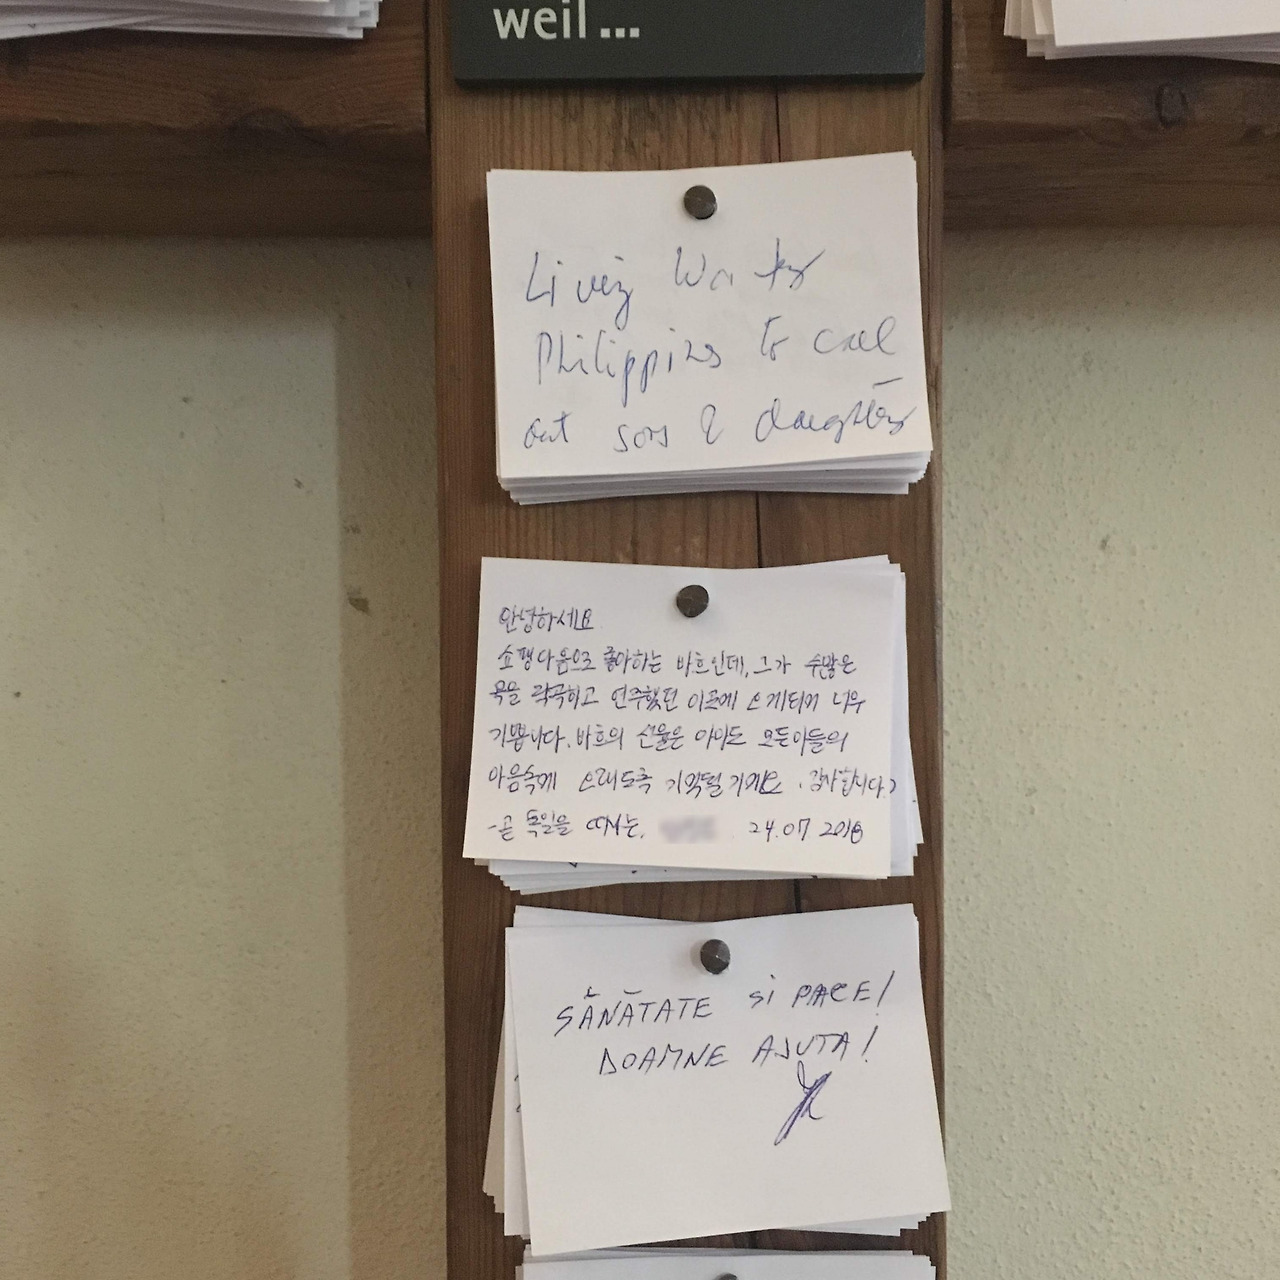 weil...
Living Water
Philippins to call
out sons & daughters
안녕하세요
쇼팽다음으로 좋아하는 바흐인데, 그가 수많은
곡을 작곡하고 연주했던 이곳에 오게되어 너무
기쁩니다. 바흐의 선율은 아마도 모든이들의
마음속에 오래도록 기억될거예요. 감사합니다.
-곧 독일을 떠나는, 24.07 2018
SĂNĂTATE si PACE!
DOAMNE AJUTA!